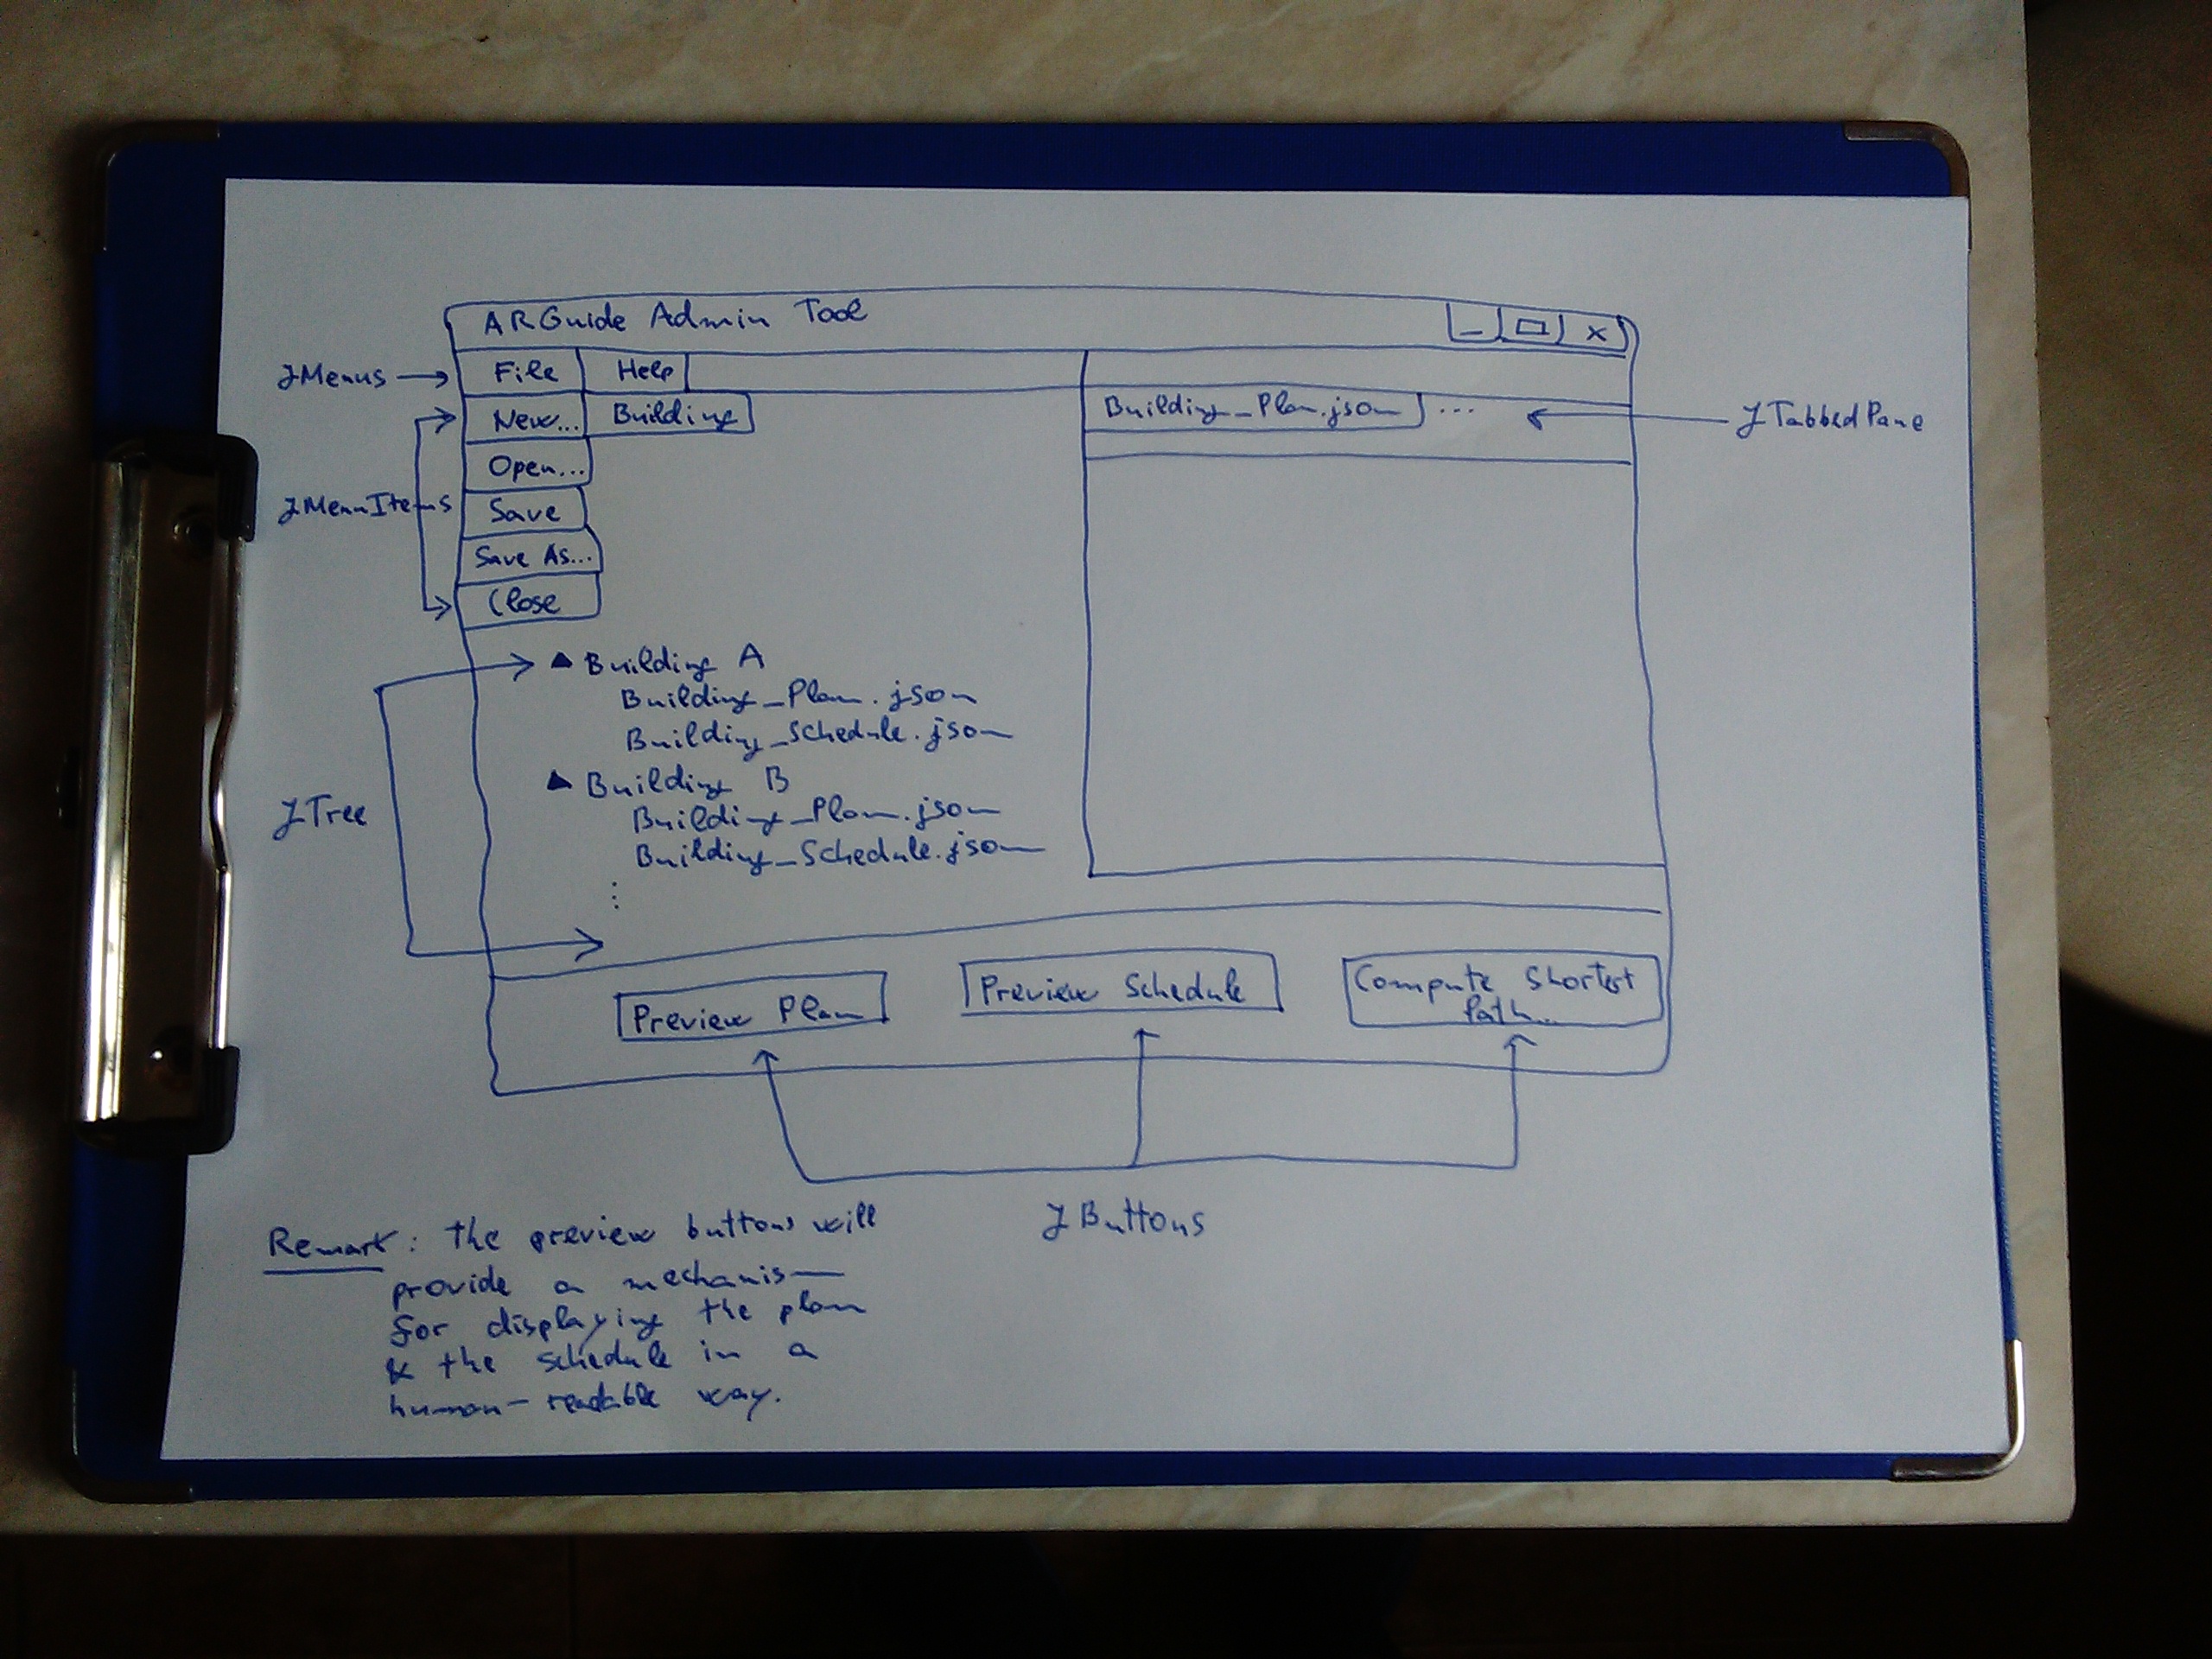 ARGuide Admin Tool
_ x
JMenus File Help
New... Building
Building_Plan.json ...
JTabbedPane
Open...
JMenuItems
Save
Save As...
Close
Building A
Building_Plan.json
Building_Schedule.json
Building B
JTree
Building_Plan.json
Building_Schedule.json
⋮
Preview Plan
Preview Schedule
Compute Shortest
Path...
JButtons
Remark: The preview buttons will
provide a mechanism
for displaying the plan
& the schedule in a
human-readable way.